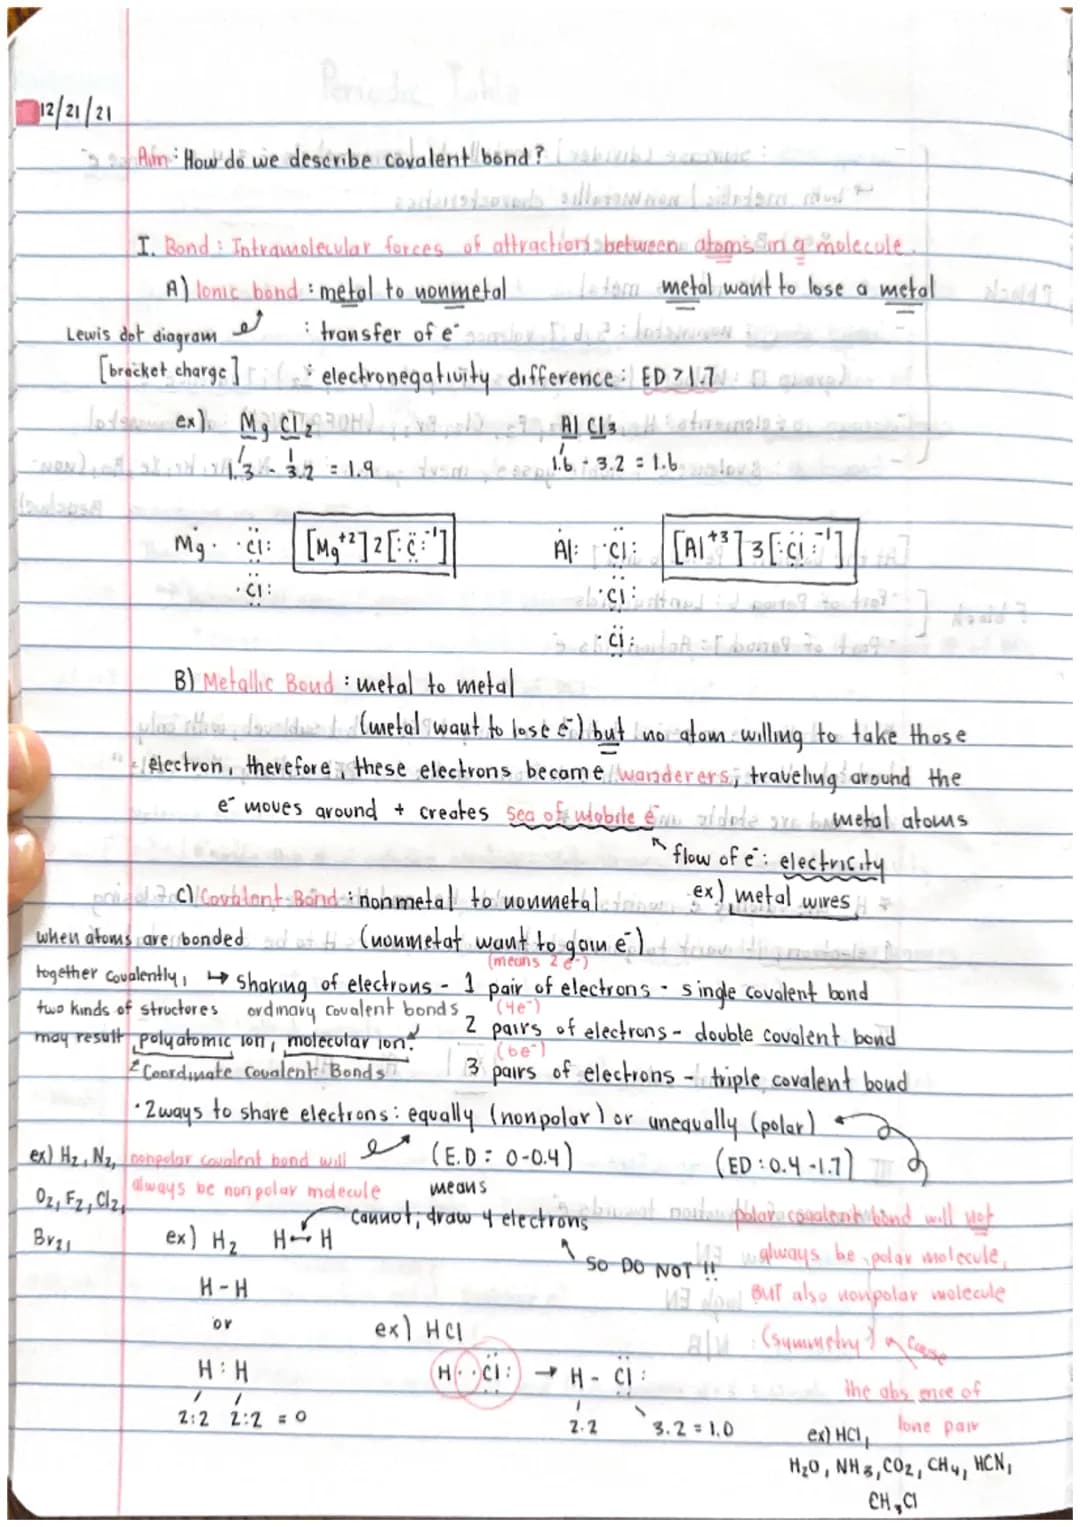 12/21/21
Aim: How do we describe covalent bond?
I. Bond: Intramolecular forces of attraction between atoms in a molecule.
A) Ionic bond: metal to nonmetal
metal want to lose a metal
Lewis dot diagram
: transfer of e⁻
[bracket, charge]
: electronegativity difference: ED > 1.7
ex) MgCl₂
AlCl₃
1.3 - 3.2 = 1.9
1.6 - 3.2 = 1.6
Mg· ·Cl: [Mg⁺²] 2[:Cl:⁻¹]
Al: ·Cl: [Al⁺³] 3[:Cl:⁻¹]
·Cl:
·Cl:
·Cl:
B) Metallic Bond: metal to metal
(metal want to lose e⁻) but no atom willing to take those
electron, therefore, these electrons became wanderers, traveling around the
metal atoms
e⁻ moves around + creates sea of mobile e⁻
flow of e⁻: electricity
ex) metal wires
C) Covalent Bond: nonmetal to nonmetal
(nonmetal want to gain e⁻)
when atoms are bonded
together covalently,
two kinds of structores
may result polyatomic ion, molecular ion.
(means 2e⁻)
↳ sharing of electrons - 1 pair of electrons - single covalent bond
ordinary covalent bonds
(4e⁻)
2 pairs of electrons - double covalent bond
(6e⁻)
Coordinate Covalent Bonds
3 pairs of electrons - triple covalent bond
·2ways to share electrons: equally (nonpolar) or unequally (polar)
(E.D: 0-0.4)
(ED: 0.4-1.7)
ex) H₂, N₂,
O₂, F₂, Cl₂,
Br₂,
nonpolar covalent bond will
always be nonpolar molecule
means
cannot, draw 4 electrons
SO DO NOT!!
ex) H₂ H-H
H-H
or
H:H
2:2 2:2 = 0
ex) HCl
H··Cl: → H-Cl:
2.2 3.2 = 1.0
polar covalent bond will not
always be polar molecule,
BUT also nonpolar molecule
(symmetry)
cause
the absence of
lone pair
ex) HCl,
H₂O, NH₃, CO₂, CH₄, HCN,
CH₃Cl